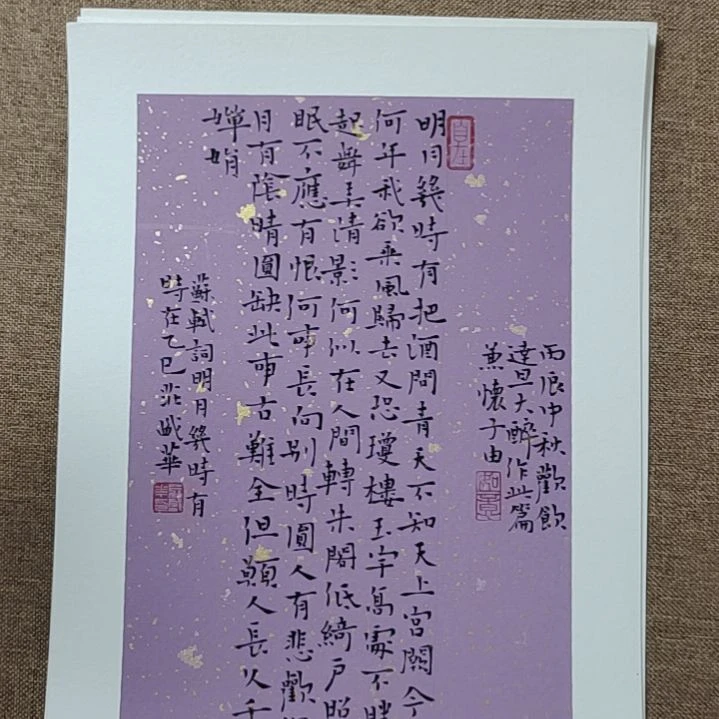 丙辰中秋歡飲
達旦大醉作此篇
兼懷子由
明月幾時有把酒問青天不知天上宮闕今
何年我欲乘風歸去又恐瓊樓玉宇高處不勝
起舞弄清影何似在人間轉朱閣低綺戶照
眠不應有恨何事長向別時圓人有悲歡
月有陰晴圓缺此事古難全但願人長久千
嬋娟
蘇軾詞明月幾時有
時在乙巳華